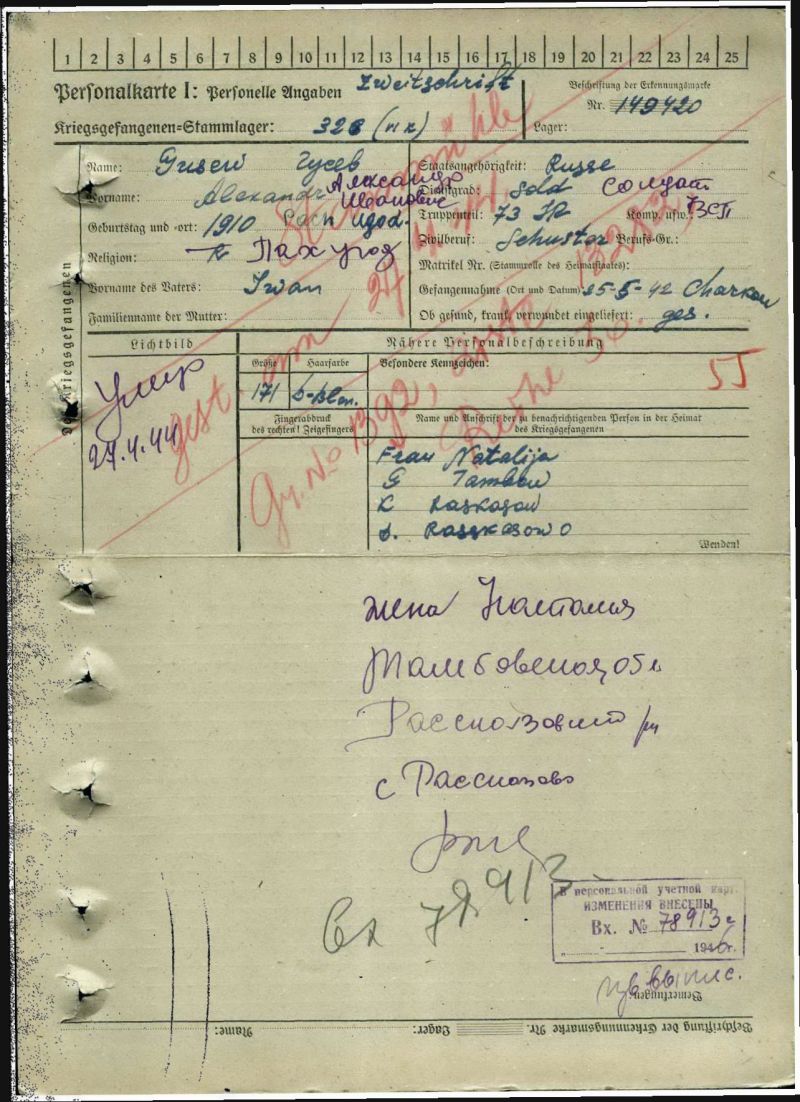 1 2 3 4 5 6 7 8 9 10 11 12 13 14 15 16 17 18 19 20 21 22 23 24 25
Personalkarte I: Personelle Angaben Zweitschrift
Beschriftung der Erkennungsmarke
Nr. 149420
Kriegsgefangenen=Stammlager: 326 (VI K)
Lager:
Name: Gusew Гусев
Vorname: Alexandr Александр Иванович
Geburtstag und -ort: 1910
Religion:
Vorname des Vaters: Iwan
Familienname der Mutter:
Staatsangehörigkeit: Russe
Dienstgrad: Sold Солдат
Truppenteil: 73 IR Komp. usw.:
Zivilberuf: Schuster Berufs-Gr.:
Matrikel Nr. (Stammrolle des Heimatstaates):
Gefangennahme (Ort und Datum): 25-5-42 Charkow
Ob gesund, krank, verwundet eingeliefert: ges.
des Kriegsgefangenen
gest. am 24.4.44
Gr. No 1392, Reihe 36.
Lichtbild
Умер
24.4.44
Nähere Personalbeschreibung
Größe
Haarfarbe
Besondere Kennzeichen:
171
Fingerabdruck
des rechten! Zeigefingers
Name und Anschrift der zu benachrichtigenden Person in der Heimat
des Kriegsgefangenen
Frau Natalija
G Tambow
R Raskasow
d. Rasskasowo
Wenden!
жена Наталия
Тамбовская обл
Рассказовский рн
с Рассказово
Вх 78913
В персональной учетной карт.
ИЗМЕНЕНИЯ ВНЕСЕНЫ
Вх. № 78913с
1946г.
Bemerkungen:
Beschriftung der Erkennungsmarke Nr. Lager: Name: